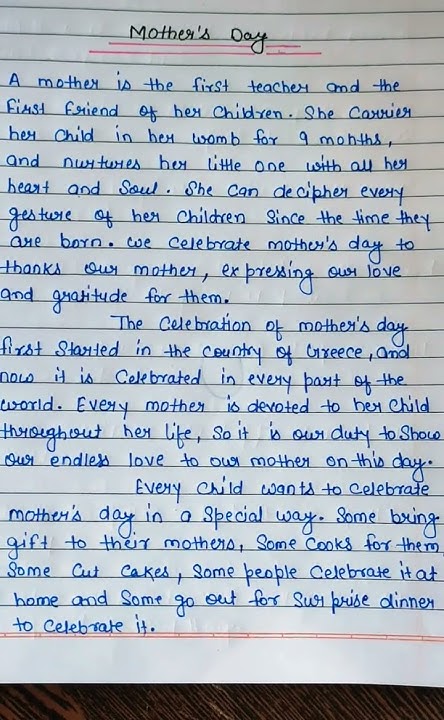 Mother's Day
A mother is the first teacher and the
first friend of her children. She carrier
her child in her womb for 9 months,
and nurtures her little one with all her
heart and soul. She can decipher every
gesture of her children since the time they
are born. we celebrate mother's day to
thanks our mother, expressing our love
and gratitude for them.
The celebration of mother's day
first started in the country of Greece, and
now it is celebrated in every part of the
world. Every mother is devoted to her child
throughout her life, so it is our duty to show
our endless love to our mother on this day.
Every child wants to celebrate
mother's day in a special way. Some bring
gift to their mothers, some cooks for them
some cut cakes, some people celebrate it at
home and some go out for surprise dinner
to celebrate it.